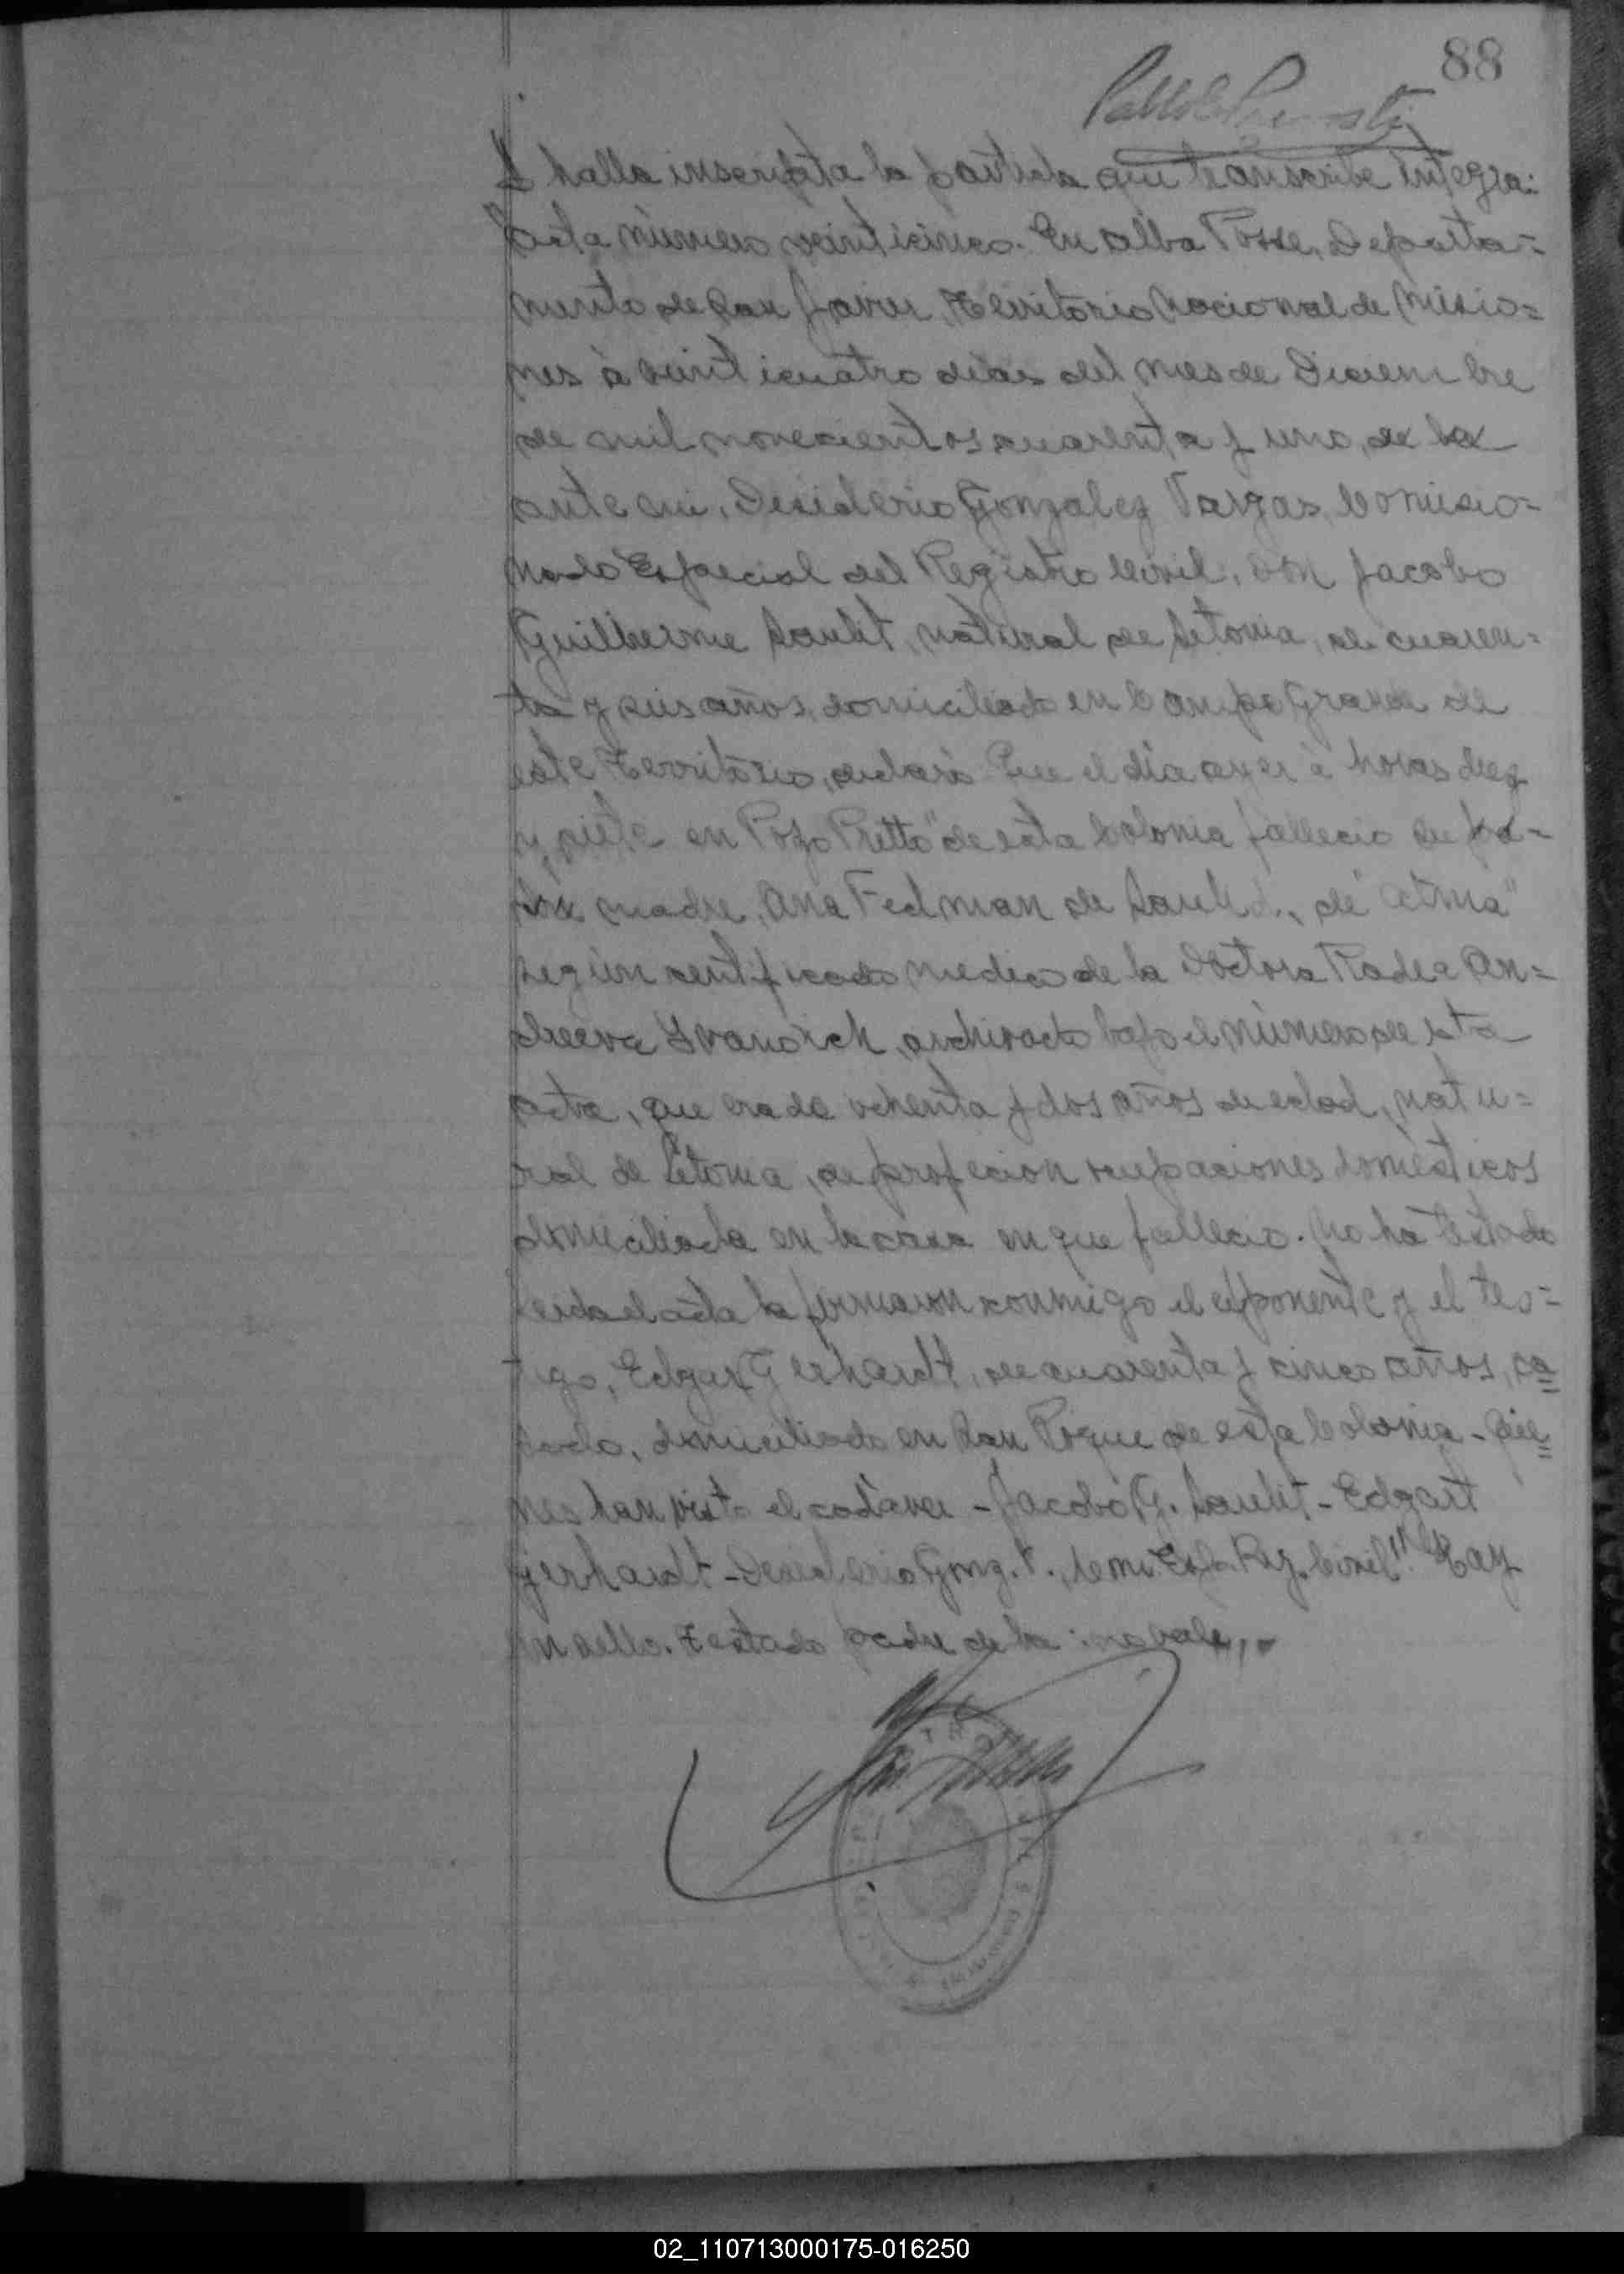 88
se halla inscripta la partida que transcribe integra:
Acta número veinticinco. En Alba Posse, Departa=
mento de San Javier, Territorio Nacional de Misio=
nes á veinticuatro días del mes de Diciembre
de mil novecientos cuarenta y uno, de la
ante mi, Desiderio Gonzalez Vargas, Comisio=
nado Especial del Registro Civil, don Jacobo
Guilherme Saulit, natural de Letonia, de cuaren=
ta y seis años, domiciliado en Campo Grande de
este Territorio, declaró: Que el día ayer á horas diez
y siete en "Pozo Pretto" de esta Colonia falleció su pa=
dre madre, Ana Fedman de Saulit, de "Asma"
según certificado medico de la Doctora Radea An=
dreeva Ivanovich, archivado bajo el número de esta
acta, que era de ochenta y dos años de edad, natu=
ral de Letonia, de profecion ocupaciones domésticos
domiciliada en la casa en que falleció. No ha testado
Leida el acta la firmaron conmigo el exponente y el tes=
tigo, Edgart Gerhardt, de cuarenta y cinco años, ca=
sado, domiciliado en San Roque de esta Colonia - Quie=
nes han visto el cadáver - Jacobo G. Saulit - Edgart
Gerhardt - Desiderio Gonz. V., Comi. Esp. Reg. Civil". Hay
un sello. Testado padre de la: no vale,,-
02_110713000175-016250